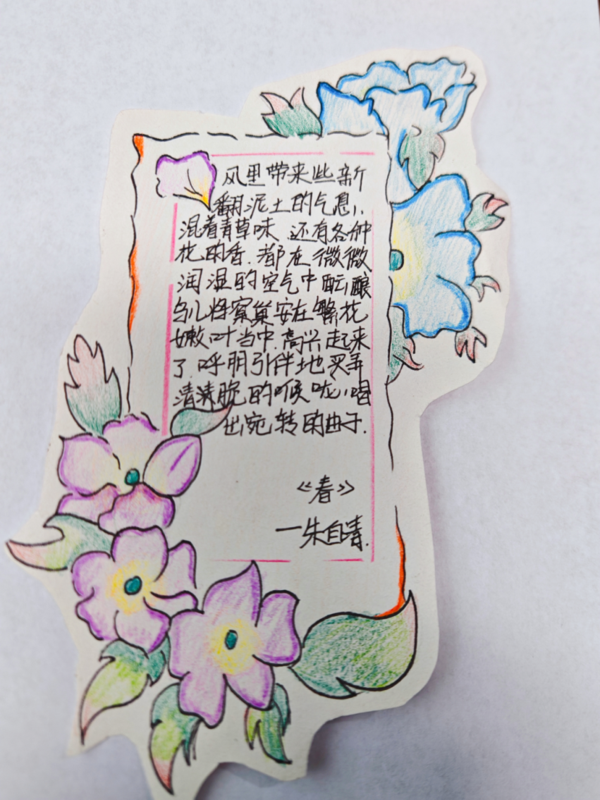 风里带来些新
翻泥土的气息,
混着青草味.还有各种
花的香.都在微微
润湿的空气中酝酿
鸟儿将窠巢安在繁花
嫩叶当中.高兴起来
了.呼朋引伴地卖弄
清脆的喉咙,唱
出宛转的曲子.
《春》
—朱自清.